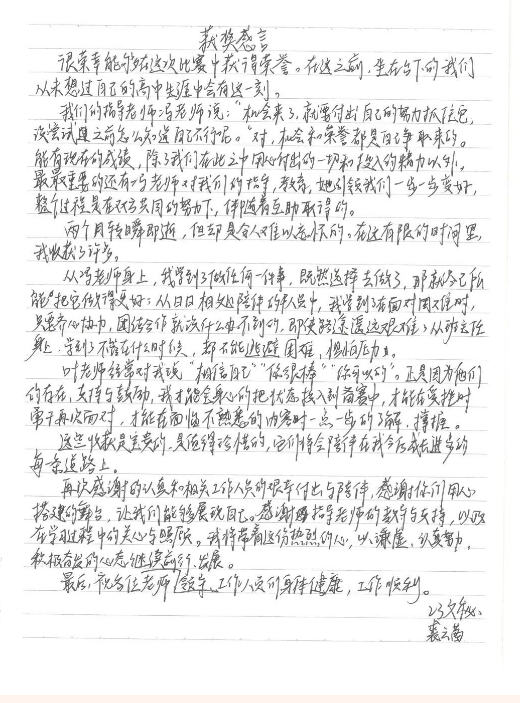 获奖感言
很荣幸能够在这次比赛中获得荣誉。在这之前，坐在台下的我们
从未想过自己的高中生涯中会有这一刻。
我们的指导老师冯老师说："机会来了，就要付出自己的努力抓住它，
没尝试过之前怎么知道自己不行呢。"对，机会和荣誉都是自己争取来的。
能有现在的成绩，除了我们在此之中用心付出的一切和投入的精力以外，
最最重要的还有冯老师对我们的指导，教育，她引领我们一步一步变好，
整个过程是在双方共同的努力下，伴随着互助取得的。
两个月转瞬即逝，但却是令人难以忘怀的。在这有限的时间里，
我收获了许多。
从冯老师身上，我学到了做任何一件事，既然选择去做了，那就尽己所
能把它做得更好；从日日相处陪伴的人员中，我学到了在面对困难时，
只要齐心协力，团结合作就没什么办不到的，即使路途遥远艰难；从班主任
身上，学到了不管在什么时候，都不能逃避困难，惧怕压力。
叶老师经常对我说"相信自己""你很棒""你可以的"。正是因为他们
的存在，支持与鼓励，我才能全身心的把状态投入到备赛中，才能在受挫时
勇于再次面对，才能在面临不熟悉的内容时一点一点的了解，掌握。
这些收获是宝贵的，是值得珍惜的，它们将会陪伴在我今后成长进步的
每一条道路上。
再次感谢的认真和相关工作人员的艰辛付出与陪伴，感谢你们用心
搭建的舞台，让我们能够展现自己。感谢指导老师的教导与支持，以及
在学习过程中的关心与照顾。我将带着这份热烈的心，以谦虚、认真努力，
积极奋发的心态继续前行、发展。
最后，祝各位老师、领导、工作人员们身体健康，工作顺利。
23文秘
裘云茜